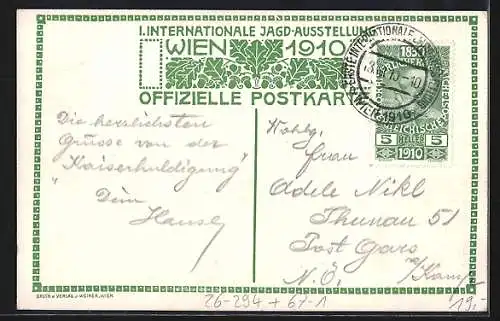 I. INTERNATIONALE JAGD-AUSSTELLUNG
WIEN 1910
OFFIZIELLE POSTKARTE
1910
5 HELLER 5
1910
Die herzlichsten
Grüsse von der
"Kaiserhuldigung"
Dein
Hansl
Wohlg.
Frau
Adele Nikl
Thunau 51
Post Gars
a/Kamp
N.Ö.
DRUCK u VERLAG J. WEINER, WIEN.
26-294 + 67-1
19,-